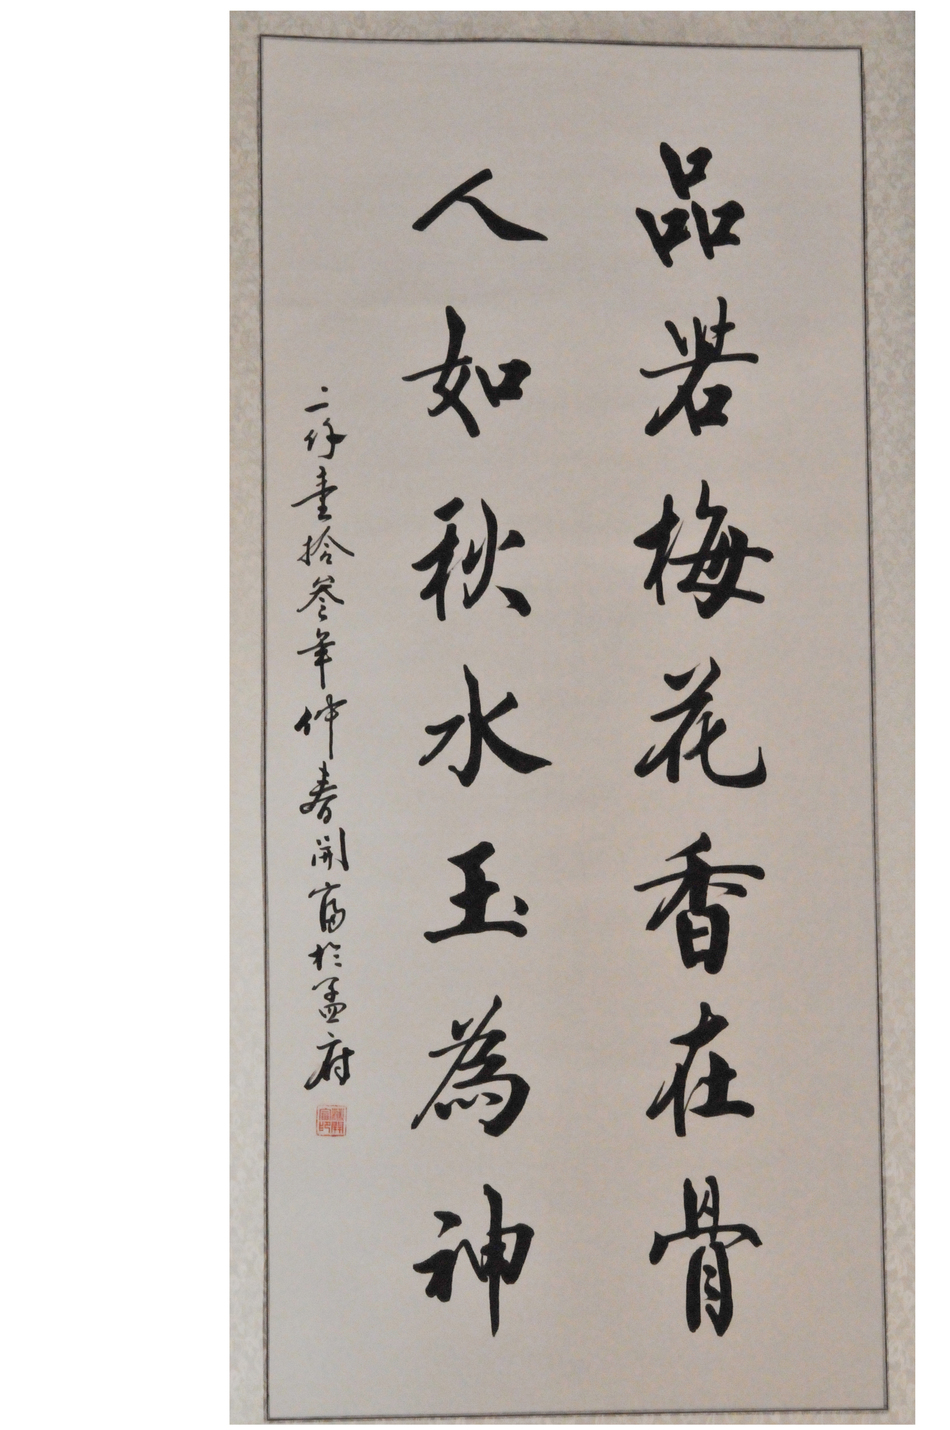 品若梅花香在骨
人如秋水玉為神
二仟壹拾叁年仲春開富於孟府